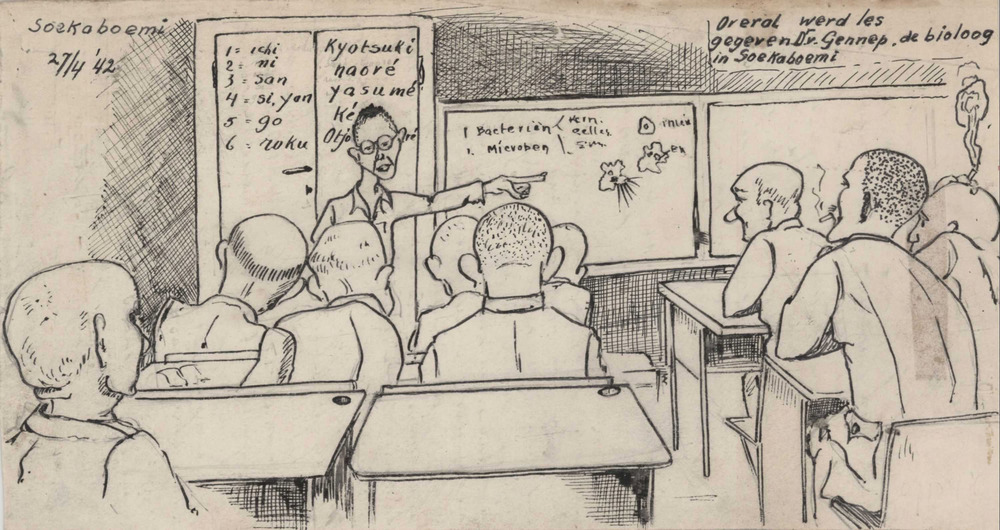 Soekaboemi
27/4 '42
Overal werd les
gegeven. Dr. Gennep, de bioloog
in Soekaboemi
1 = ichi
2 = ni
3 = san
4 = si, yon
5 = go
6 = roku
Kyotsuki
naoré
yasumé
Ké
1 Bacteriën
1. Microben